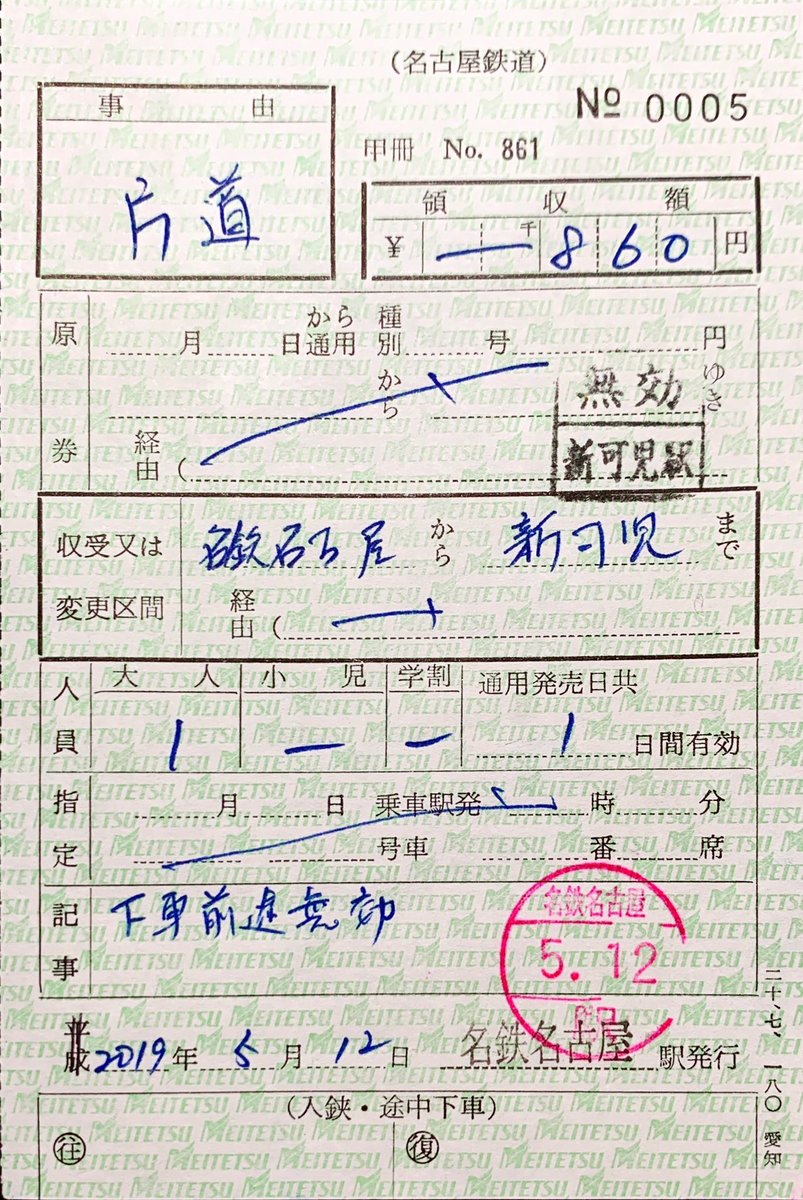 (名古屋鉄道)
№ 0005
事 由
甲冊 No. 861
片道
領 収 額
¥ 千 860 円
原券
月 日から通用 種別 号 円
から ゆき
無効
経由(
新可児駅
収受又は変更区間
名鉄名古屋 から 新可児 まで
経由(
人員
大人 小児 学割 通用発売日共
1 — — 1 日間有効
指定
月 日 乗車駅発 時 分
号車 番 席
記事
下車前途無効
名鉄名古屋
5.12
平成 2019年 5月 12日 名鉄名古屋 駅発行
(入鋏・途中下車)
往 復
二十、七、一八〇 愛知
MEITETSU